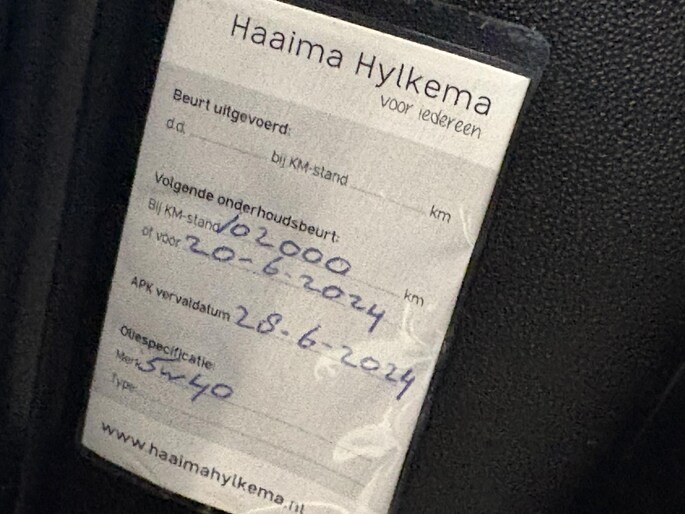 Haaima Hylkema
voor iedereen
Beurt uitgevoerd:
d.d. bij KM-stand km
Volgende onderhoudsbeurt:
Bij KM-stand 102000 km
of voor 20-6-2024
APK vervaldatum 28-6-2024
Oliespecificatie:
Merk 5w40
Type:
www.haaimahylkema.nl